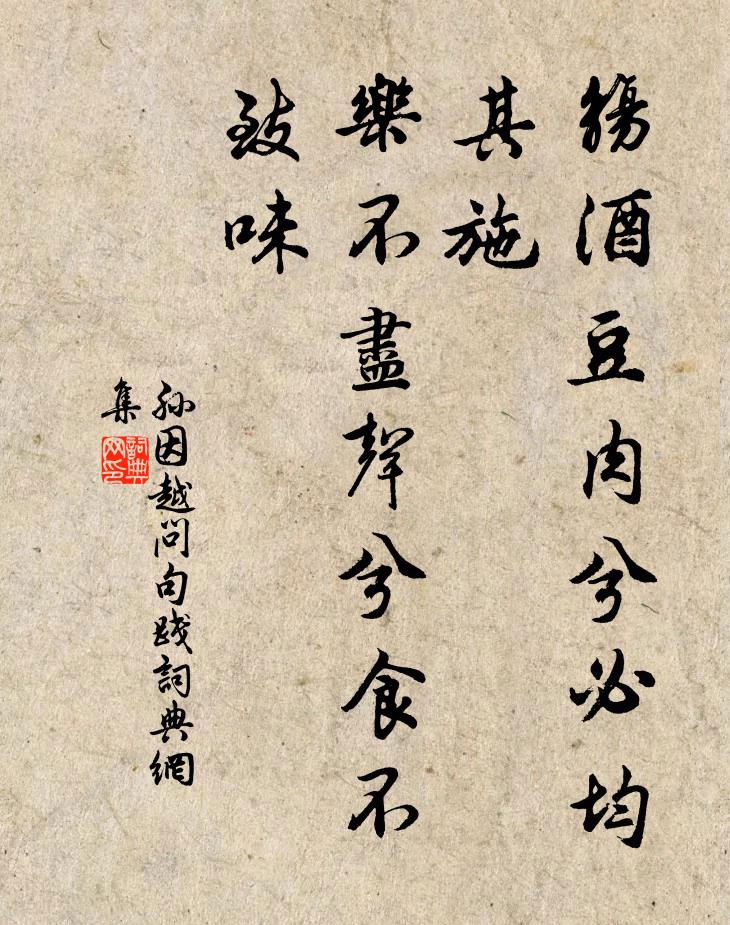 觴酒豆肉兮必均
其施
樂不盡聲兮食不
致味
孫因越問句踐詞典網
集
詞典
网印